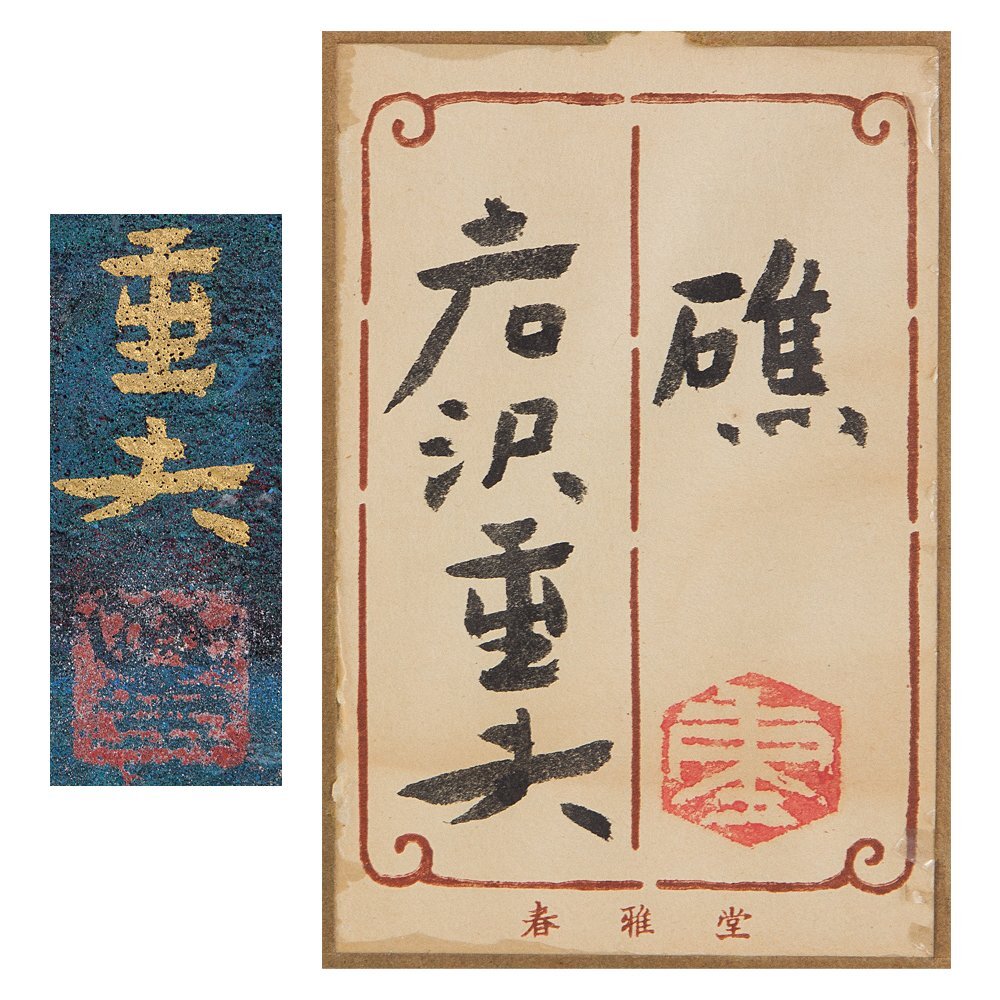 重夫
礁
岩沢重夫
春雅堂